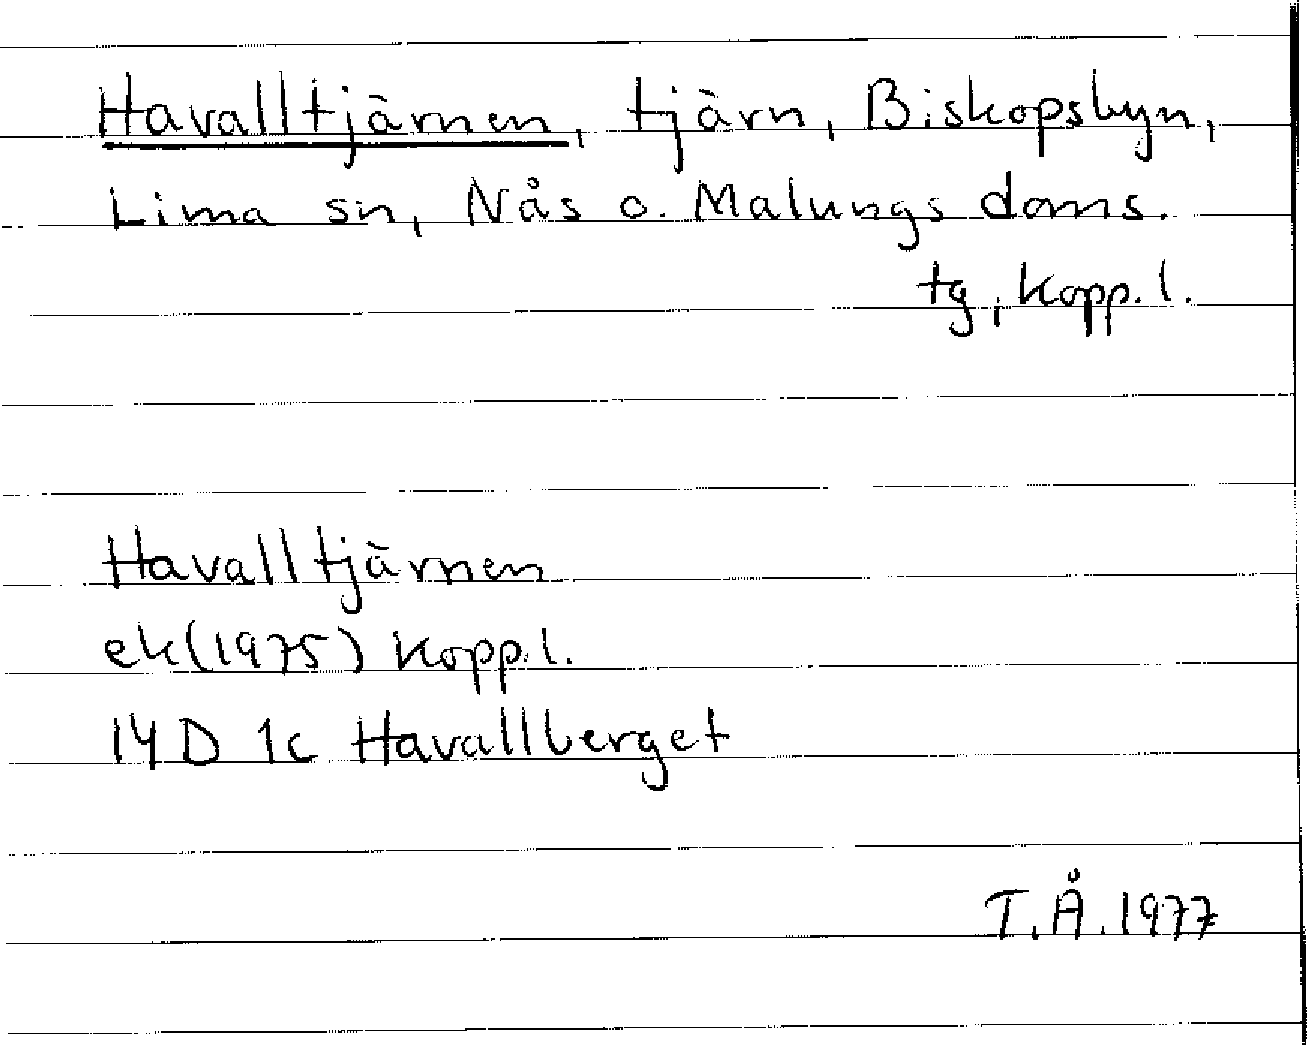 Havalltjärnen, tjärn, Biskopsbyn,
Lima sn, Nås o. Malungs doms.
tg, Kopp. l.
Havalltjärnen
ek(1975) Kopp. l.
14D 1c Havallberget
T.Å. 1977